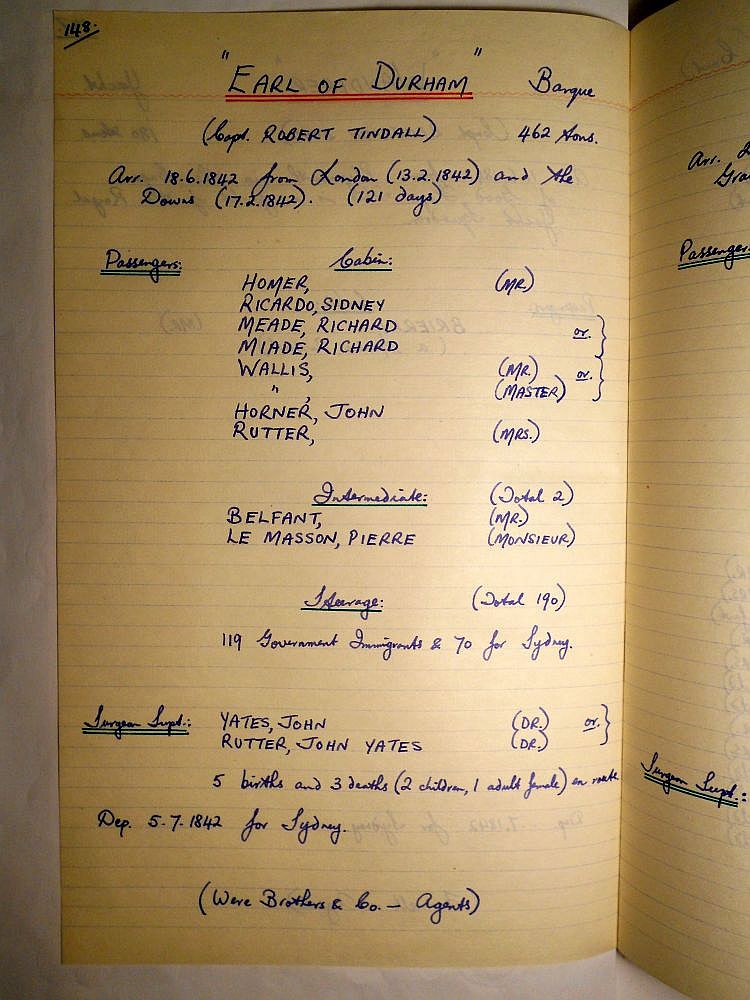 148.
"EARL OF DURHAM" Barque
(Capt. ROBERT TINDALL) 462 tons.
Arr. 18.6.1842 from London (13.2.1842) and the
Downs (17.2.1842). (121 days)
Passengers: Cabin:
HOMER, (MR)
RICARDO, SIDNEY
MEADE, RICHARD or.
MIADE, RICHARD
WALLIS, (MR.) or.
" , (MASTER)
HORNER, JOHN
RUTTER, (MRS.)
Intermediate: (Total 2)
BELFANT, (MR.)
LE MASSON, PIERRE (MONSIEUR)
Steerage: (Total 190)
119 Government Immigrants & 70 for Sydney.
Surgeon Supt.: YATES, JOHN (DR.) or.
RUTTER, JOHN YATES (DR.)
5 births and 3 deaths (2 children, 1 adult female) en route
Dep. 5.7.1842 for Sydney.
(Were Brothers & Co. — Agents)
Arr.
Passenger
Surgeon Supt.: